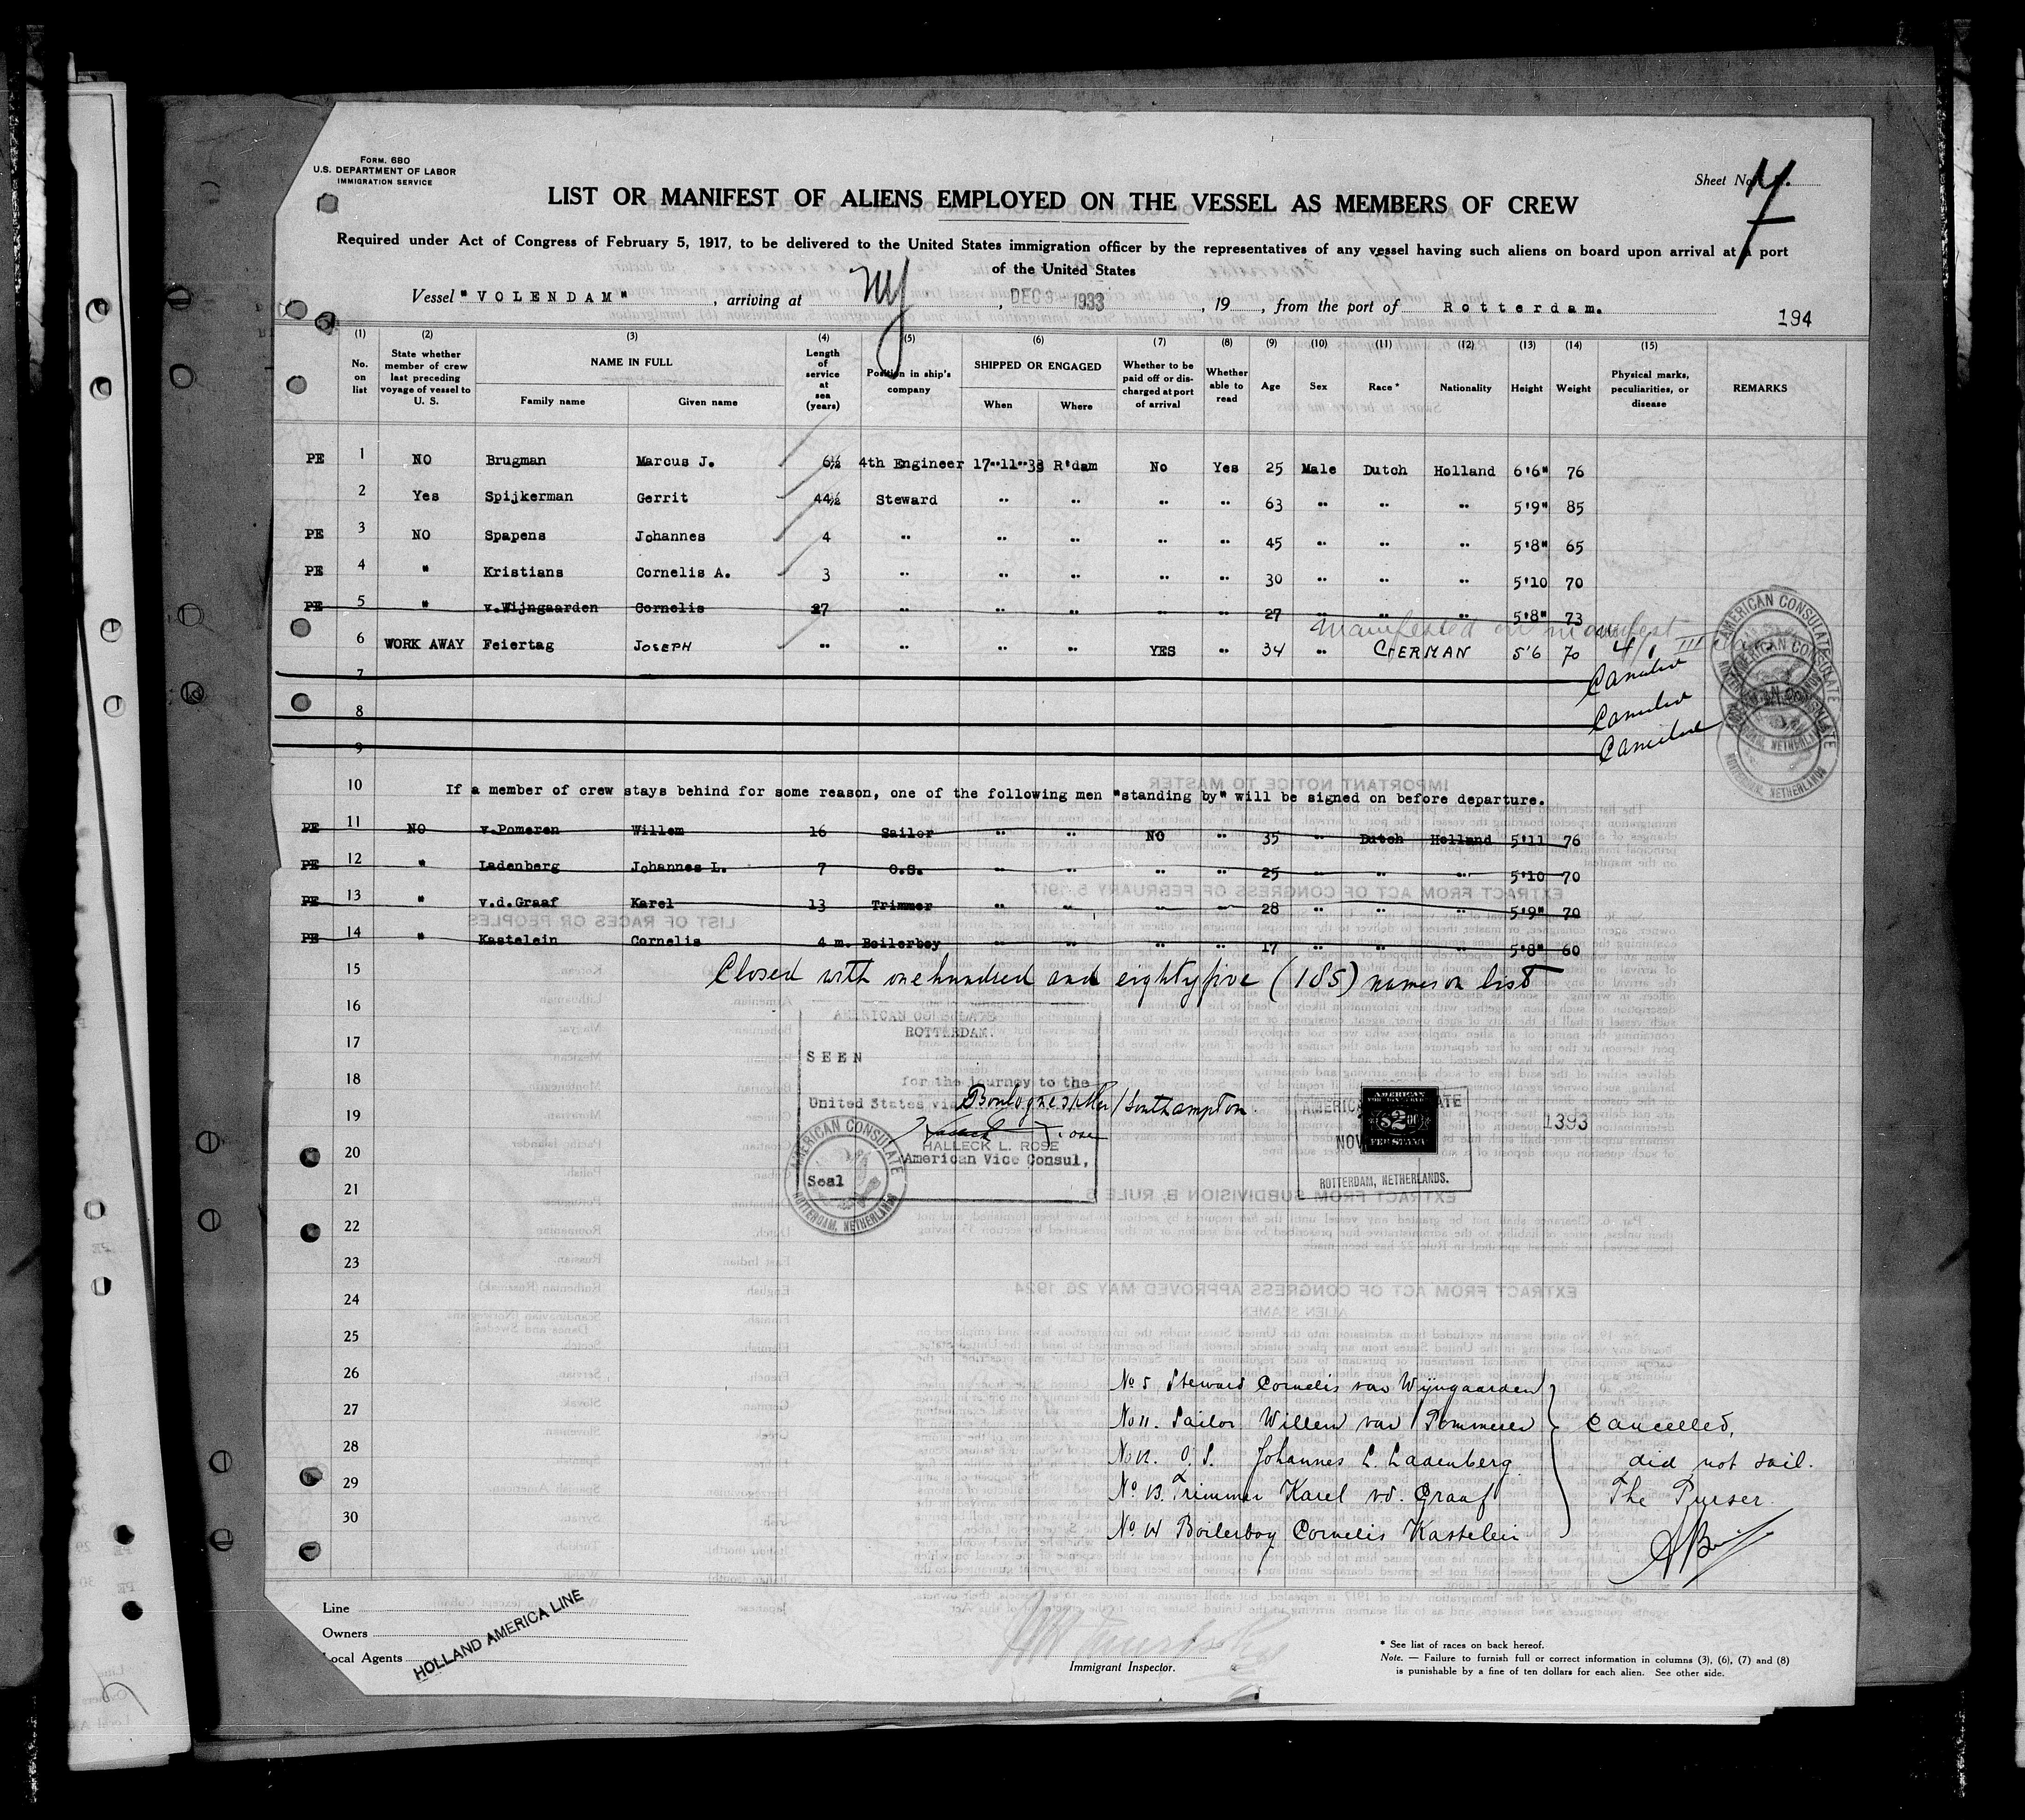 FORM. 680
U.S. DEPARTMENT OF LABOR
IMMIGRATION SERVICE
Sheet No. 7
LIST OR MANIFEST OF ALIENS EMPLOYED ON THE VESSEL AS MEMBERS OF CREW
Required under Act of Congress of February 5, 1917, to be delivered to the United States immigration officer by the representatives of any vessel having such aliens on board upon arrival at a port
of the United States
Vessel "VOLENDAM", arriving at NY, DEC 3 1933, 19, from the port of Rotterdam.
194
(1) (2) (3) (4) (5) (6) (7) (8) (9) (10) (11) (12) (13) (14) (15)
No. on list State whether member of crew last preceding voyage of vessel to U. S. NAME IN FULL Family name Given name Length of service at sea (years) Position in ship's company SHIPPED OR ENGAGED When Where Whether to be paid off or discharged at port of arrival Whether able to read Age Sex Race* Nationality Height Weight Physical marks, peculiarities, or disease REMARKS
PE 1 NO Brugman Marcus J. 6½ 4th Engineer 17"11"33 R'dam No Yes 25 Male Dutch Holland 6'6" 76
2 Yes Spijkerman Gerrit 44½ Steward " " " " 63 " " " 5'9" 85
PE 3 NO Spapens Johannes 4 " " " " " 45 " " " 5'8" 65
PE 4 " Kristians Cornelis A. 3 " " " " " 30 " " " 5'10 70
PE 5 " v.Wijngaarden Cornelis 27 " " " " " 27 " " " 5'8" 73
manifested on manifest III
6 WORK AWAY Feiertag JOSEPH " " " " YES " 34 " GERMAN 5'6 70
7 Cancelled
8 Cancelled
9 Cancelled
10 If a member of crew stays behind for some reason, one of the following men "standing by" will be signed on before departure.
PE 11 NO v.Pomeren Willem 16 Sailor " " NO " 35 " Dutch Holland 5'11 76
PE 12 " Ladenberg Johannes L. 7 O.S. " " " " 25 " " " 5'10 70
PE 13 " v.d.Graaf Karel 13 Trimmer " " " " 28 " " " 5'9" 70
PE 14 " Kastelein Cornelis 4 m. Boilerboy " " " " 17 " " " 5'8" 60
15 Closed with one hundred and eightyfive (185) names on list
16
17
18
19
20
21
22
23
24
25
26
27
28
29
30
AMERICAN CONSULATE
ROTTERDAM.
SEEN
for the journey to the
United States via Boulogne s/Mer/Southampton.
HALLECK L. ROSE
American Vice Consul,
Seal
AMERICAN CONSULATE
ROTTERDAM, NETHERLANDS
AMERICAN CONSULATE
NOV
AMERICAN
$2.00
FEE STAMP
ROTTERDAM, NETHERLANDS.
1393
AMERICAN CONSULATE
ROTTERDAM, NETHERLANDS
No 5 Steward Cornelis van Wijngaarden
No 11. Sailor Willem van Pommeren
No 12. O.S. Johannes L. Ladenberg
No 13. Trimmer Karel v.d. Graaf
No 14 Boilerboy Cornelis Kastelein
Cancelled,
did not sail.
The Purser
Line
Owners
Local Agents
HOLLAND AMERICA LINE
Immigrant Inspector.
* See list of races on back hereof.
Note. — Failure to furnish full or correct information in columns (3), (6), (7) and (8)
is punishable by a fine of ten dollars for each alien. See other side.